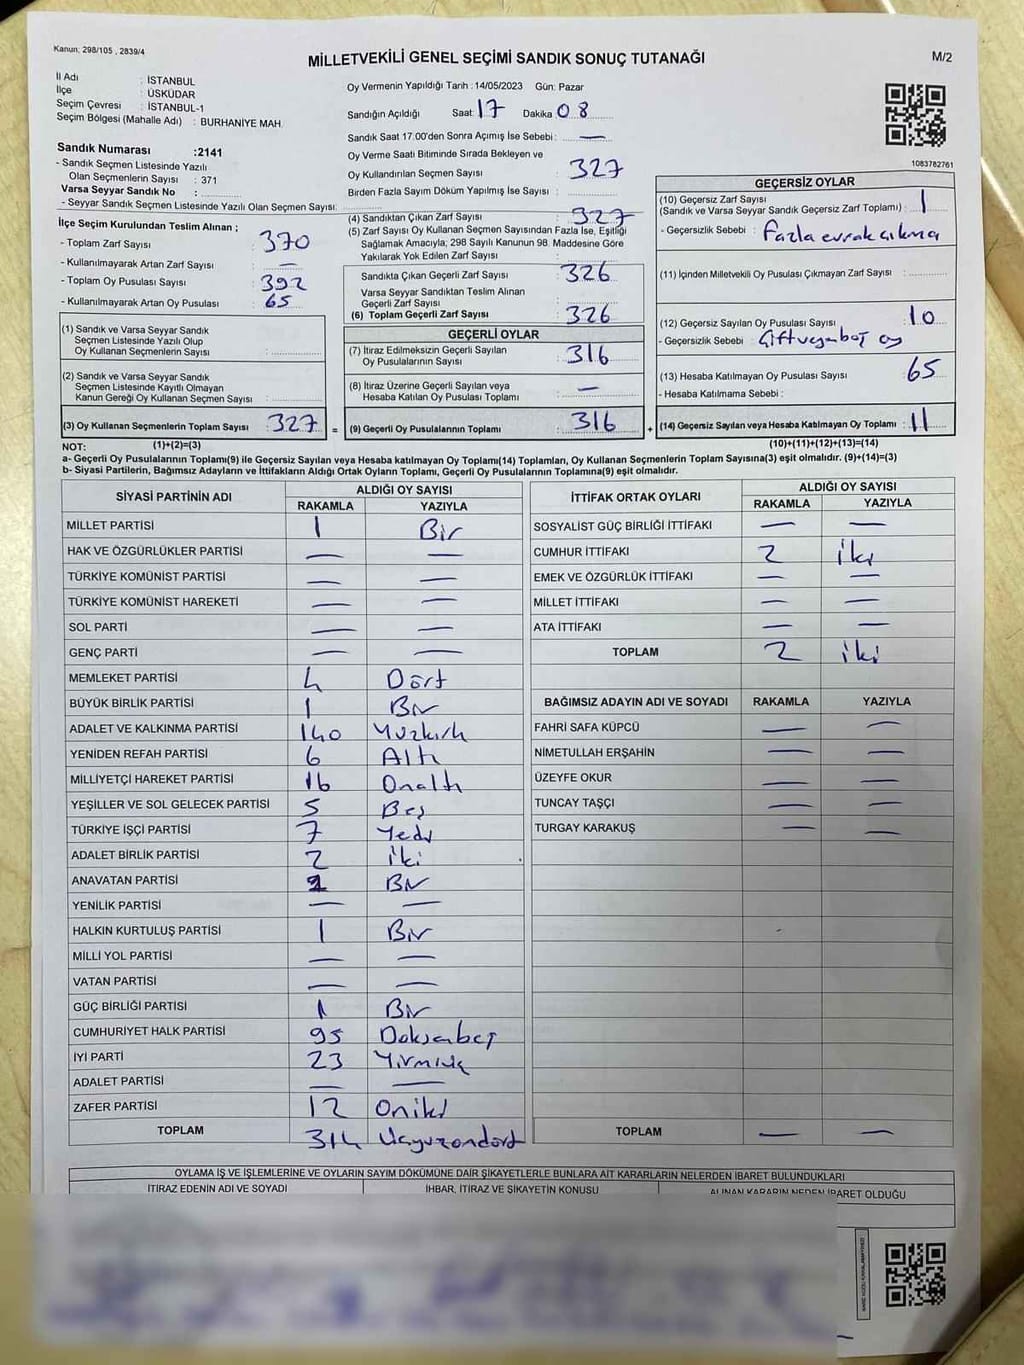 Kanun, 298/105 , 2839/4
MİLLETVEKİLİ GENEL SEÇİMİ SANDIK SONUÇ TUTANAĞI
M/2
İl Adı : İSTANBUL
İlçe : ÜSKÜDAR
Seçim Çevresi : İSTANBUL-1
Seçim Bölgesi (Mahalle Adı) : BURHANİYE MAH.
Sandık Numarası :2141
- Sandık Seçmen Listesinde Yazılı
Olan Seçmenlerin Sayısı : 371
Varsa Seyyar Sandık No :
- Seyyar Sandık Seçmen Listesinde Yazılı Olan Seçmen Sayısı:
Oy Vermenin Yapıldığı Tarih : 14/05/2023 Gün: Pazar
Sandığın Açıldığı Saat: 17 Dakika 08
Sandık Saat 17.00'den Sonra Açımış İse Sebebi : —
Oy Verme Saati Bitiminde Sırada Bekleyen ve
Oy Kullandırılan Seçmen Sayısı : 327
Birden Fazla Sayım Döküm Yapılmış İse Sayısı :
1083782761
İlçe Seçim Kurulundan Teslim Alınan ;
- Toplam Zarf Sayısı : 370
- Kullanılmayarak Artan Zarf Sayısı : —
- Toplam Oy Pusulası Sayısı : 392
- Kullanılmayarak Artan Oy Pusulası : 65
(1) Sandık ve Varsa Seyyar Sandık
Seçmen Listesinde Yazılı Olup
Oy Kullanan Seçmenlerin Sayısı :
(2) Sandık ve Varsa Seyyar Sandık
Seçmen Listesinde Kayıtlı Olmayan
Kanun Gereği Oy Kullanan Seçmen Sayısı :
(3) Oy Kullanan Seçmenlerin Toplam Sayısı : 327 =
(4) Sandıktan Çıkan Zarf Sayısı : 327
(5) Zarf Sayısı Oy Kullanan Seçmen Sayısından Fazla İse, Eşitliği
Sağlamak Amacıyla; 298 Sayılı Kanunun 98. Maddesine Göre
Yakılarak Yok Edilen Zarf Sayısı :
Sandıkta Çıkan Geçerli Zarf Sayısı : 326
Varsa Seyyar Sandıktan Teslim Alınan
Geçerli Zarf Sayısı :
(6) Toplam Geçerli Zarf Sayısı : 326
GEÇERLİ OYLAR
(7) İtiraz Edilmeksizin Geçerli Sayılan
Oy Pusulalarının Sayısı : 316
(8) İtiraz Üzerine Geçerli Sayılan veya
Hesaba Katılan Oy Pusulası Toplamı : —
(9) Geçerli Oy Pusulalarının Toplamı : 316 +
GEÇERSİZ OYLAR
(10) Geçersiz Zarf Sayısı
(Sandık ve Varsa Seyyar Sandık Geçersiz Zarf Toplamı) : 1
- Geçersizlik Sebebi : fazla evrak çıkma
(11) İçinden Milletvekili Oy Pusulası Çıkmayan Zarf Sayısı :
(12) Geçersiz Sayılan Oy Pusulası Sayısı : 10
- Geçersizlik Sebebi : Çift veya boş oy
(13) Hesaba Katılmayan Oy Pusulası Sayısı : 65
- Hesaba Katılmama Sebebi :
(14) Geçersiz Sayılan veya Hesaba Katılmayan Oy Toplamı : 11
NOT: (1)+(2)=(3) (10)+(11)+(12)+(13)=(14)
a- Geçerli Oy Pusulalarının Toplamı(9) ile Geçersiz Sayılan veya Hesaba katılmayan Oy Toplamı(14) Toplamları, Oy Kullanan Seçmenlerin Toplam Sayısına(3) eşit olmalıdır. (9)+(14)=(3)
b- Siyasi Partilerin, Bağımsız Adayların ve İttifakların Aldığı Ortak Oyların Toplamı, Geçerli Oy Pusulalarının Toplamına(9) eşit olmalıdır.
SİYASİ PARTİNİN ADI ALDIĞI OY SAYISI
RAKAMLA YAZIYLA
MİLLET PARTİSİ 1 Bir
HAK VE ÖZGÜRLÜKLER PARTİSİ — —
TÜRKİYE KOMÜNİST PARTİSİ — —
TÜRKİYE KOMÜNİST HAREKETİ — —
SOL PARTİ — —
GENÇ PARTİ — —
MEMLEKET PARTİSİ 4 Dört
BÜYÜK BİRLİK PARTİSİ 1 Bir
ADALET VE KALKINMA PARTİSİ 140 Yüzkırk
YENİDEN REFAH PARTİSİ 6 Altı
MİLLİYETÇİ HAREKET PARTİSİ 16 Onaltı
YEŞİLLER VE SOL GELECEK PARTİSİ 5 Beş
TÜRKİYE İŞÇİ PARTİSİ 7 Yedi
ADALET BİRLİK PARTİSİ 2 iki
ANAVATAN PARTİSİ 1 Bir
YENİLİK PARTİSİ — —
HALKIN KURTULUŞ PARTİSİ 1 Bir
MİLLİ YOL PARTİSİ — —
VATAN PARTİSİ — —
GÜÇ BİRLİĞİ PARTİSİ 1 Bir
CUMHURİYET HALK PARTİSİ 95 Doksanbeş
İYİ PARTİ 23 Yirmiüç
ADALET PARTİSİ — —
ZAFER PARTİSİ 12 Oniki
TOPLAM 314 Üçyüzondört
İTTİFAK ORTAK OYLARI ALDIĞI OY SAYISI
RAKAMLA YAZIYLA
SOSYALİST GÜÇ BİRLİĞİ İTTİFAKI — —
CUMHUR İTTİFAKI 2 iki
EMEK VE ÖZGÜRLÜK İTTİFAKI — —
MİLLET İTTİFAKI — —
ATA İTTİFAKI — —
TOPLAM 2 iki
BAĞIMSIZ ADAYIN ADI VE SOYADI RAKAMLA YAZIYLA
FAHRİ SAFA KÜPCÜ — —
NİMETULLAH ERŞAHİN — —
ÜZEYFE OKUR — —
TUNCAY TAŞÇI — —
TURGAY KARAKUŞ — —
TOPLAM — —
OYLAMA İŞ VE İŞLEMLERİNE VE OYLARIN SAYIM DÖKÜMÜNE DAİR ŞİKAYETLERLE BUNLARA AİT KARARLARIN NELERDEN İBARET BULUNDUKLARI
İTİRAZ EDENİN ADI VE SOYADI İHBAR, İTİRAZ VE ŞİKAYETİN KONUSU ALINAN KARARIN NEDEN İBARET OLDUĞU